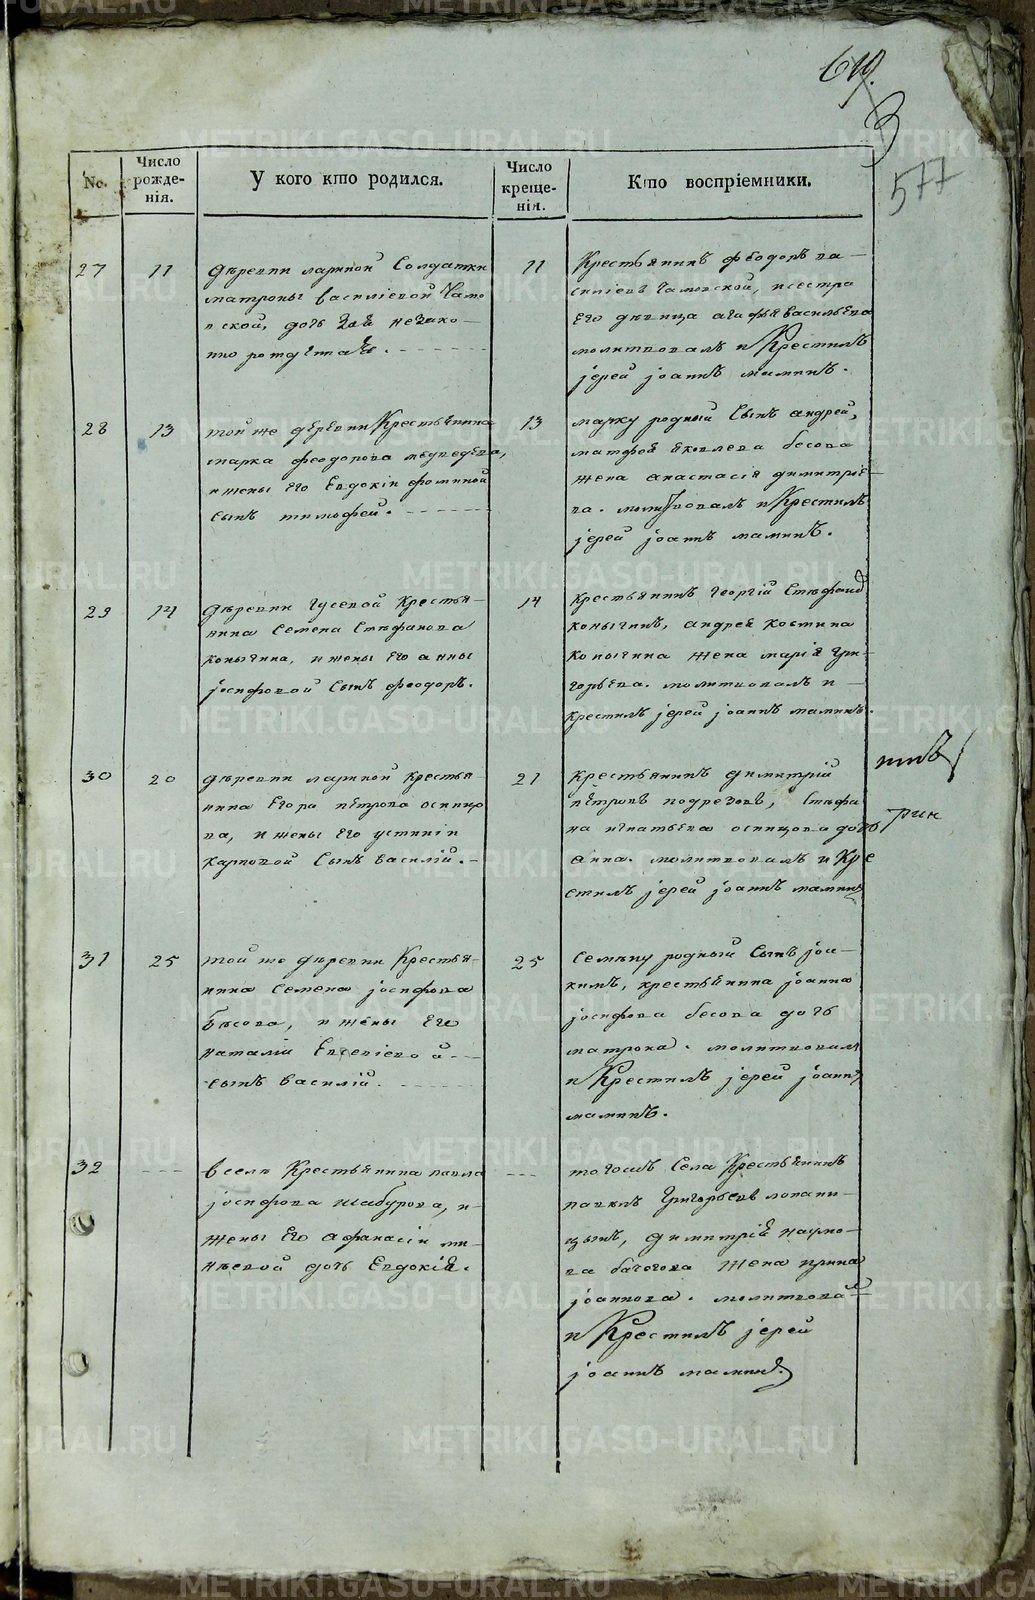 619.
3
577
No.
Число рожде-
нія.
У кого кто родился.
Число креще-
нія.
Кто воспріемники.
27
11
деревни лариной Солдатки
матроны василіевой Чамо
вской, дочь незако-
нно рожденная.
11
Крестьянинъ феодоръ ва-
силіевъ Чамовской, и сестра
Его девица агафья васильева
молитвовалъ и Крестилъ
іерей іоаннъ маминъ.
28
13
той же деревни Крестьянина
марка феодорова медведева,
и жены Его Евдокіи фоминой
Сынъ тимофей.
13
марку родный Сынъ андрей,
матфея яковлева бесова
жена анастасія димитріе-
ва. молитвовалъ и Крестилъ
іерей іоаннъ маминъ.
29
14
деревни гусевой Крестья-
нина Семена Стефанова
копычина, и жены Его анны
іосифовой Сынъ феодоръ.
14
Крестьянинъ георгій Стефановъ
копычинъ, андрея костина
копычина жена марія гри-
горьева. молитвовалъ и
крестилъ іерей іоаннъ маминъ.
30
20
деревни лариной крестья-
нина Егора петрова осинцо
ва, и жены Его устиніи
карповой Сынъ василій.
21
Крестьянинъ димитрій
петровъ подрезовъ, Стефа
на игнатьева осинцова дочь
анна. молитвовалъ и Кре
стилъ іерей іоаннъ маминъ
31
25
той же деревни Крестья-
нина Семена іосифова
бесова, и жены Его
наталіи Евсевіевой
сынъ василій.
25
Семену родный Сынъ іоа-
кимъ, крестьянина іоанна
іосифова бесова дочь
матрона. молитвовалъ
и Крестилъ іерей іоаннъ
маминъ.
32
в селе Крестьянина павла
іосифова шабурова, и
жены Его афанасіи ми-
неевой дочь Евдокія.
тогожъ Села Крестьянинъ
павелъ григорьевъ лопани-
цынъ, димитрія наумо-
ва жена ирина
іоаннова. молитвовалъ
и Крестилъ іерей
іоаннъ маминъ
METRIKI.GASO-URAL.RU